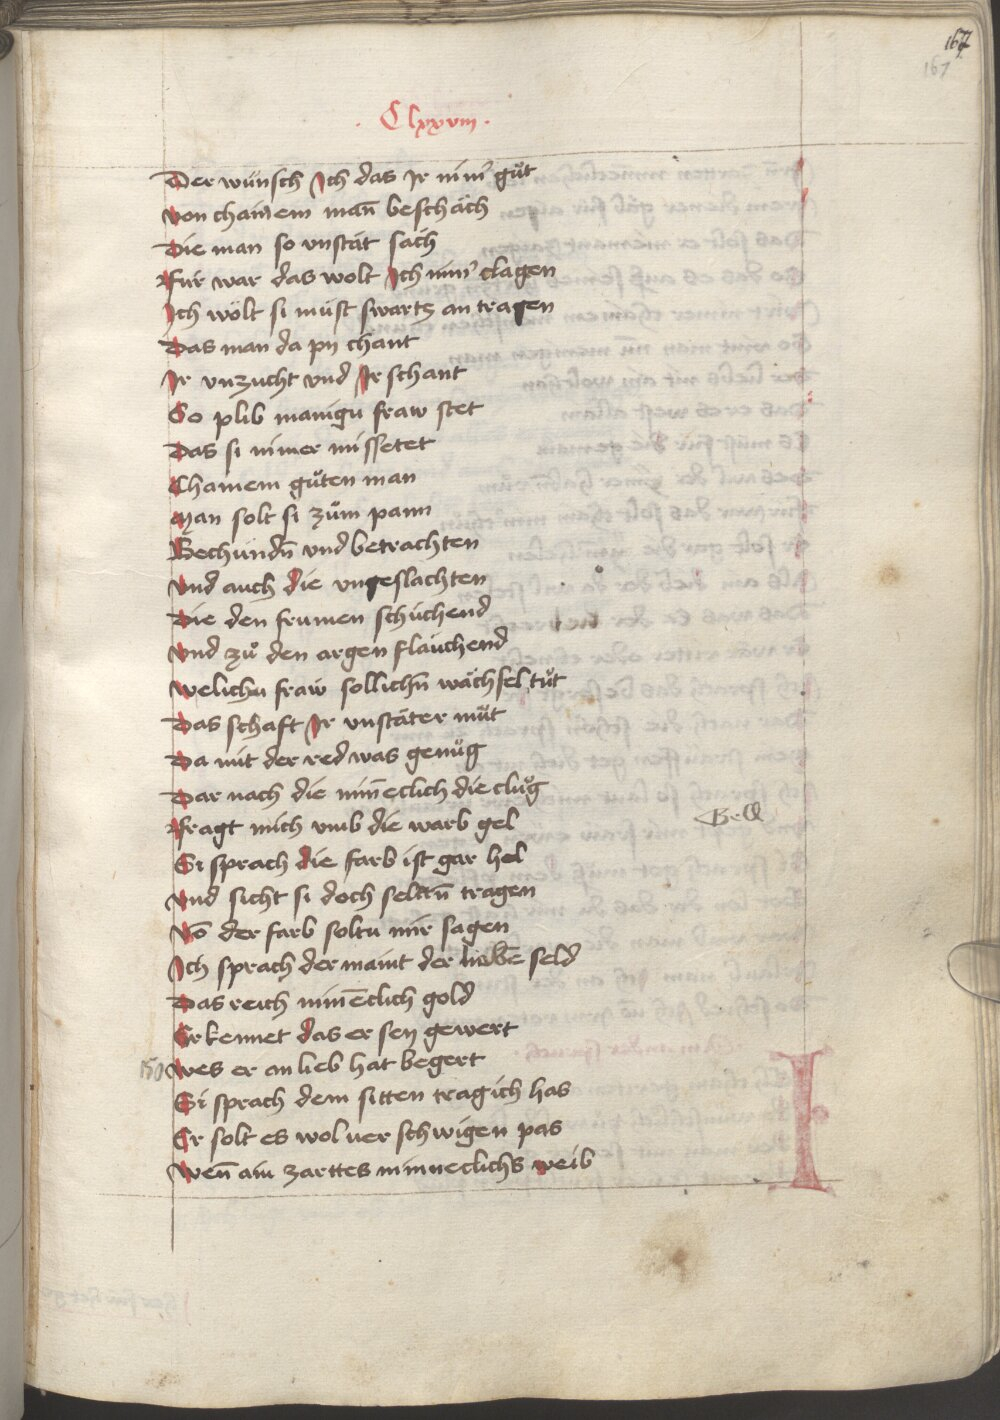 167
167
· Clxxviii ·
Der wünsch Ich das Ir nim̄ gůt
von chainem man̄ beschäch
Die man so vnstät säch
Für war das wolt Ich nim̄ clagen
Ich wölt si müst swartz an tragen
Das man da py chant
Ir vnzucht vnd Ir schant
So plib manigu fraw stet
Das si nimer missetet
Chainem gůten man
Man solt si zům pann
Bechündn̄ vnd betrachten
vnd auch die vngeslachten
Die den frumen schüchend
vnd zů den argen fläuchend
welichu fraw sollichn̄ wächsel tůt
Das schaft Ir vnstäter můt
Da mit der red was genůg
Dar nach die min̄eclich die clůg
Fragt mich vmb die warb gel
Si sprach die farb ist gar hel
Gell
vnd sicht si doch seltn̄ tragen
Vō der farb soltu mir sagen
Ich sprach der maint der liebē seld
Das reich min̄eclich gold
Erkennet das er sey gewert
150
wes er an lieb hat begert
Si sprach dem sitten trag ich has
Er solt es wol uer schwigen pas
Wen̄ ain zarttes minneclichs weib